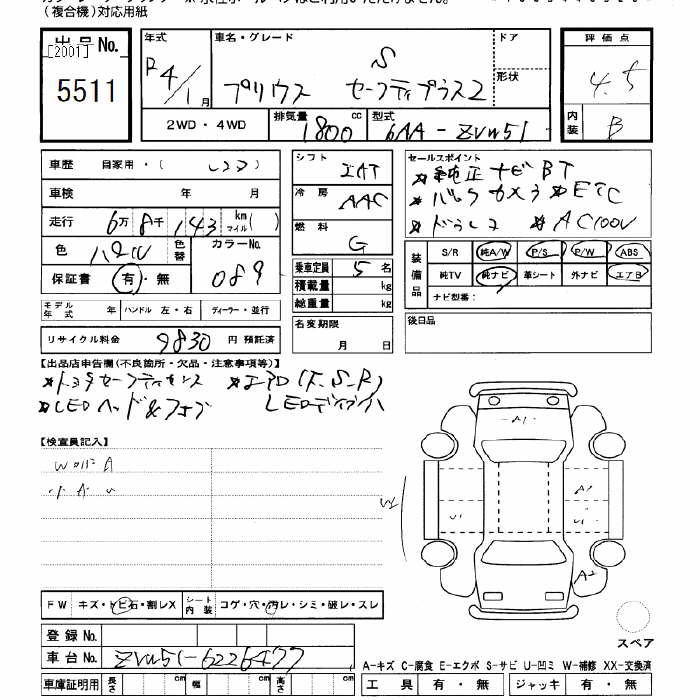 (複合機)対応用紙
出品No. [2001] 5511
年式 R4/1月
車名・グレード プリウス S セーフティプラス2
ドア
形状
2WD・4WD 排気量 1800 cc 型式 6AA-ZVW51
評価点 4.5
内装 B
車歴 自家用・( レンタ )
車検 年 月
走行 6万8千143 km マイル ( )
色 パール 色替 カラーNo. 089
保証書 有・無
モデル年式 年 ハンドル 左・右 ディーラー・並行
リサイクル料金 9830 円 預託済
シフト IAT
冷房 AAC
燃料 G
乗車定員 5 名
積載量 kg
総重量 kg
名変期限 月 日
セールスポイント
*純正ナビ BT
*バックカメラ *ETC
*ドラレコ *AC100V
装備品 S/R 純A/W P/S P/W ABS
純TV 純ナビ 革シート 外ナビ エアB
ナビ型番:
後日品
【出品店申告欄(不良箇所・欠品・注意事項等)】
*トヨタセーフティセンス
*LEDヘッド&フォグ
【検査員記入】
A1
A1
U1
U1
A2
FW キズ・トビ石・割レX シート内装 コゲ・穴・汚レ・シミ・破レ・スレ
登録No.
車台No. ZVW51-6226477
車庫証明用 長さ cm 幅 cm 高さ cm
スペア
A-キズ C-腐食 E-エクボ S-サビ U-凹ミ W-補修 XX-交換済
工具 有・無 ジャッキ 有・無